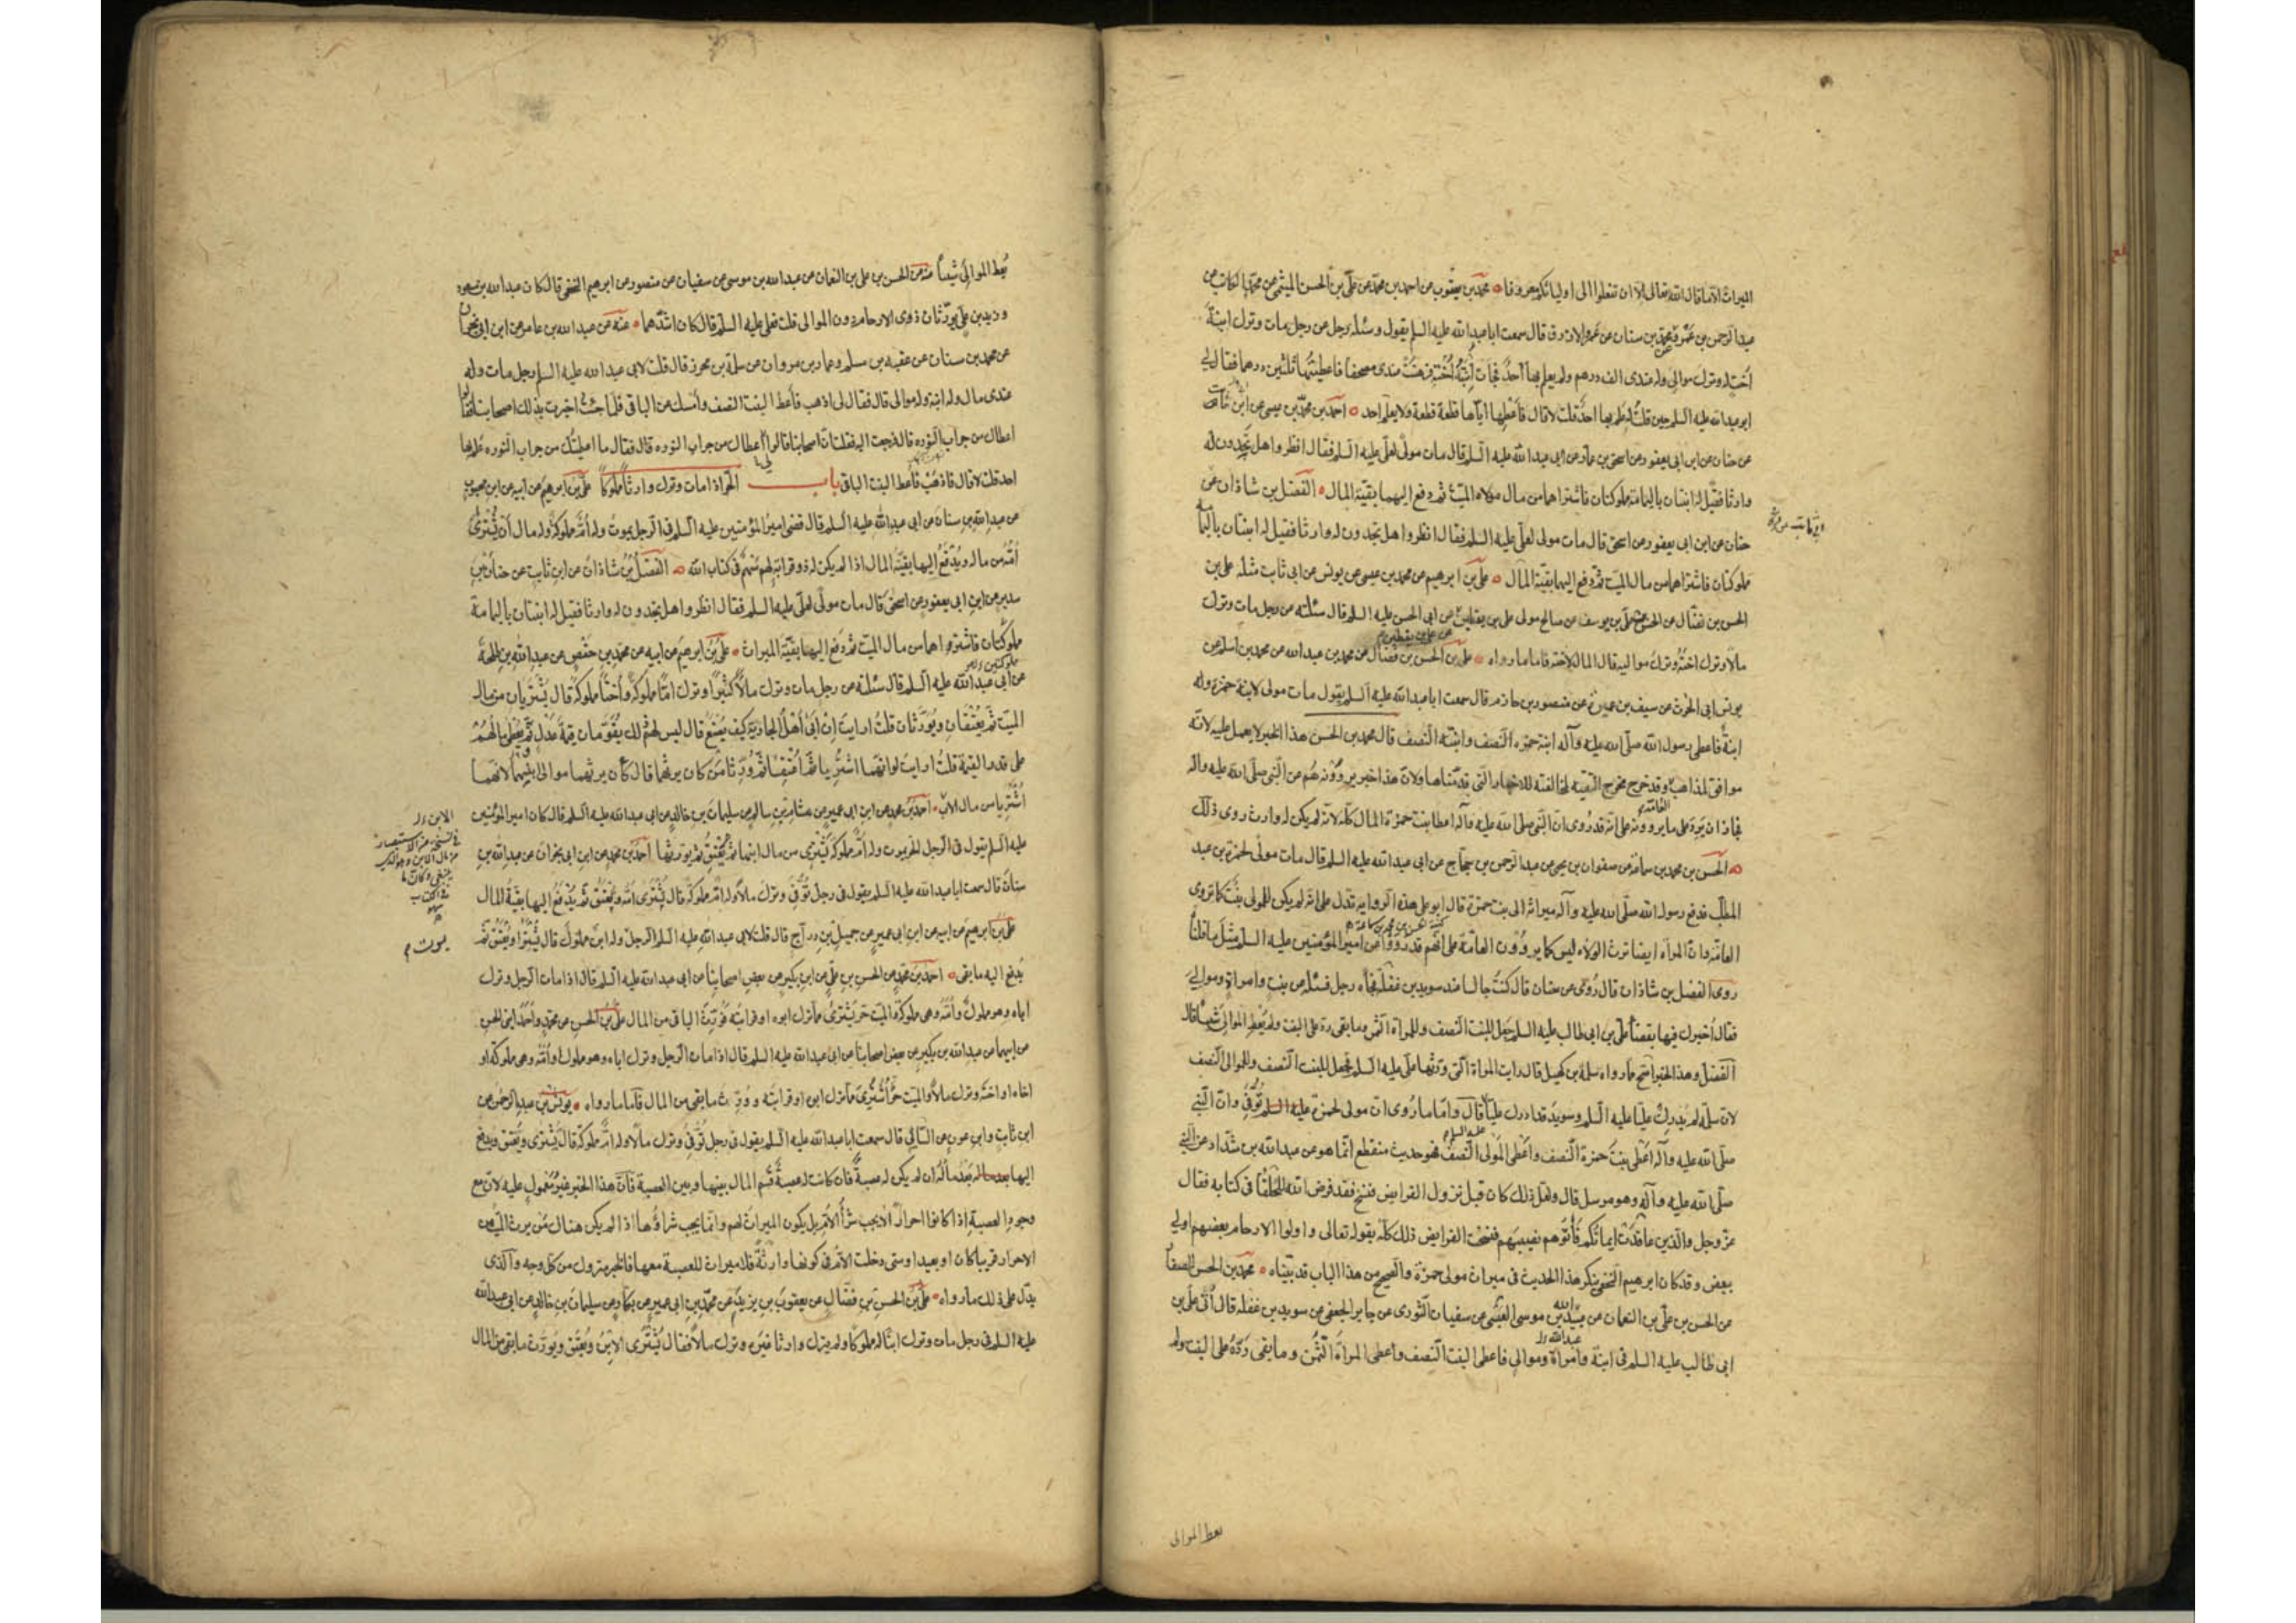 الميراث الا ما قال الله تعالى الا ان تفعلوا الى اوليائكم معروفا محمد بن يعقوب عن احمد بن محمد عن علي بن الحسن الميثمي عن محمد الكاتب عن
عبد الرحمن بن عمرو عن محمد بن سنان عن عمرو الازرق قال سمعت ابا عبد الله عليه السلم يقول وسئله رجل عن رجل مات وترك ابنة
اخت له وترك موالي وله عندي الف درهم ولم يعلم بها احد فجاءت ابنة اخته فرهنت عندي مصحفا فاعطيتها ثلثين درهما فقال لي
ابو عبد الله عليه السلم حين قلت له علم بها احد قلت لا قال فاعطها اياها قطعة قطعة ولا يعلم احد احمد بن محمد بن عيسى عن ابن ثابت
عن حنان عن ابن ابي يعفور عن اسحق بن عمار عن ابي عبد الله عليه السلم قال مات مولى لعلي عليه السلم فقال انظروا هل تجدون له
وارثا فقيل له ابنتان باليمامة مملوكتان فاشتراهما من مال مولاه الميت ثم دفع اليهما بقية المال الفضل بن شاذان عن
حنان عن ابن ابي يعفور عن اسحق قال مات مولى لعلي عليه السلم فقال انظروا هل تجدون له وارثا فقيل له ابنتان باليمامة
مملوكتان فاشتراهما من مال الميت ثم دفع اليهما بقية المال علي بن ابرهيم عن محمد بن عيسى عن يونس عن ابي ثابت مثله علي بن
الحسن بن فضال عن الحسن بن علي بن يوسف عن صالح مولى علي بن يقطين عن ابي الحسن عليه السلم قال سئلته عن رجل مات وترك
عن علي بن يقطين
مالا وترك اخته وترك مواليه قال المال لاخته فاما ما رواه علي بن الحسن بن فضال عن محمد بن عبد الله عن محمد بن اسلم عن
يونس ابي الحرث عن سيف بن عميرة عن منصور بن حازم قال سمعت ابا عبد الله عليه السلم يقول مات مولى لابنة حمزة وله
ابنة فاعطى رسول الله صلى الله عليه وآله ابنة حمزة النصف وابنته النصف قال محمد بن الحسن هذا الخبر لا يعمل عليه لانه
موافق لمذاهب وقد خرج مخرج التقية لمخالفته للاخبار التي قدمناها ولان هذا خبر يروونه هم عن النبي صلى الله عليه واله
العامة
فجاز ان يرد على ما يروونه على انه قد روى ان النبي صلى الله عليه وآله اعطا بنت حمزة المال كله لانه لم يكن له وارث روى ذلك
الحسن بن محمد بن سماعة عن صفوان بن يحيى عن عبد الرحمن بن حجاج عن ابي عبد الله عليه السلم قال مات مولى لحمزة بن عبد
المطلب فدفع رسول الله صلى الله عليه وآله ميراثه الى بنت حمزة قال ابو علي هذه الرواية تدل على انه لم يكن للمولى بنت كما تروى
العامة وان المراة ايضا ترث الولاء ليس كما يروون العامة على انهم قد رووا عن امير المؤمنين عليه السلم مثل ما قلنا
روى الفضل بن شاذان قال روى عن حنان قال كنت جالسا عند سويد بن غفلة فجاءه رجل فسئله عن بنت وامراة وموالي
فقال اخبرك فيها بقضاء علي بن ابي طالب عليه السلم جعل للبنت النصف وللمراة الثمن وما بقى رد على البنت ولم يعط الموالي شيئا قال
الفضل وهذا الخبر اصح مما رواه سلمة بن كهيل قال رايت المراة التي ورثها علي عليه السلم فجعل للبنت النصف وللموالي النصف
لان سلمة لم يدرك عليا عليه السلم وسويد قد ادرك عليا قال واما ما روى ان مولى لحمزة توفى وان النبي
صلى الله عليه وآله اعطى بنت حمزة النصف واعطى المولى النصف فهو حديث منقطع انما هو عن عبد الله بن شداد عن النبي
صلى الله عليه وآله وهو مرسل قال ولعل ذلك كان قبل نزول الفرايض فنسخ فقد فرض الله للحلفاء في كتابه فقال
عز وجل والذين عاقدت ايمانكم فآتوهم نصيبهم فنسخت الفرايض ذلك كله بقوله تعالى واولوا الارحام بعضهم اولى
ببعض وقد كان ابرهيم النخعي ينكر هذا الحديث في ميراث مولى حمزة والصحيح من هذا الباب قد بيناه محمد بن الحسن الصفار
عن الحسن بن علي بن النعمان عن عبيد الله بن موسى العبسي عن سفيان الثوري عن جابر الجعفي عن سويد بن غفلة قال اتى علي بن
عبد الله
ابي طالب عليه السلم في ابنة وامراة وموالي فاعطى البنت النصف واعطى المراة الثمن وما بقى رده على البنت ولم
يعط الموالي
يعط الموالي شيئا عنه عن الحسن بن علي بن النعمان عن عبد الله بن موسى عن سفيان عن منصور عن ابرهيم النخعي قال كان عبد الله بن مسعود
وزيد بن علي يورثان ذوى الارحام دون الموالي قلت فعلي عليه السلم قال كان اشدهما عنه عن عبد الله بن عامر عن ابن ابي نجران
عن محمد بن سنان عن عقبة بن مسلم وعمار بن مروان عن سلمة بن محرز قال قلت لابي عبد الله عليه السلم رجل مات وله
عندى مال وله ابنة وله موالى قال فقال لى اذهب فاعط البنت النصف وامسك عن الباقى فلما جئت اخبرت بذلك اصحابنا فقالوا
اعطاك من جراب النورة قال فرجعت اليه فقلت ان اصحابنا قالوا اعطاك من جراب النورة قال فقال ما اعطيتك من جراب النورة علم بها
احد قلت لا قال فاذهب فاعط البنت الباقى باب الحر اذا مات وترك وارثا مملوكا علي بن ابرهيم عن ابيه عن ابن محبوب
عن عبد الله بن سنان عن ابي عبد الله عليه السلم قال قضى امير المؤمنين عليه السلم فى الرجل يموت وله ام مملوكة وله مال ان تشترى
امه من ماله ويدفع اليها بقية المال اذا لم يكن له ذو قرابة لهم سهم فى كتاب الله الفضل بن شاذان عن ابن ثابت عن حنان بن
سدير عن ابن ابي يعفور عن اسحق قال مات مولى لعلي عليه السلم فقال انظروا هل تجدون له وارثا فقيل له ابنتان باليمامة
مملوكتان فاشتراهما من مال الميت ثم دفع اليهما بقية الميراث علي بن ابرهيم عن ابيه عن محمد بن حفص عن عبد الله بن طلحة
عن ابي عبد الله عليه السلم قال سئلته عن رجل مات وترك مالا كثيرا وترك اما مملوكة واختا مملوكة قال تشتريان من مال
الميت ثم يعتقان ويورثان قلت ارايت ان ابى اهل الجارية كيف يصنع قال ليس لهم ذلك يقومان قيمة عدل ثم يعطى مالهم
على قدر القيمة قلت ارايت لو انهما اشتريا ثم اعتقا ثم ورثا من كان يرثهما قال كان يرثهما موالى ابنهما لانهما
اشتريا من مال الابن احمد بن محمد عن ابن ابي عمير عن هشام بن سالم عن سليمان بن خالد عن ابي عبد الله عليه السلم قال كان امير المؤمنين
عليه السلم يقول فى الرجل الحر يموت وله ام مملوكة تشترى من مال ابنها ثم تعتق ثم يورثها احمد بن محمد عن ابن ابي نجران عن عبد الله بن
سنان قال سمعت ابا عبد الله عليه السلم يقول فى رجل توفى وترك مالا وله ام مملوكة قال تشترى امه وتعتق ثم يدفع اليها بقية المال
علي بن ابرهيم عن ابيه عن ابن ابي عمير عن جميل بن دراج قال قلت لابي عبد الله عليه السلم الرجل وله ابن مملوك قال يشترا ويعتق ثم
يموت
يدفع اليه ما بقى احمد بن محمد عن الحسن بن علي عن ابن بكير عن بعض اصحابنا عن ابي عبد الله عليه السلم قال اذا مات الرجل وترك
اباه وهو مملوك وامه وهى مملوكة والميت حر يشترى مما ترك ابوه او قرابته وورث الباقى من المال علي بن الحسن عن محمد واحمد ابنى الحسن
عن ابيهما عن عبد الله بن بكير عن بعض اصحابنا عن ابي عبد الله عليه السلم قال اذا مات الرجل وترك اباه وهو مملوك او امه وهى مملوكة او
اخاه او اخته وترك مالا والميت حر اشترى مما ترك ابوه او قرابته وورث ما بقى من المال فاما ما رواه يونس بن عبد الرحمن عن
ابن ثابت وابن عون عن السائى قال سمعت ابا عبد الله عليه السلم يقول فى رجل توفى وترك مالا وله ام مملوكة قال تشترى وتعتق ويدفع
اليها بعد ماله ان لم يكن له عصبة فان كانت له عصبة قسم المال بينها وبين العصبة فان هذا الخبر غير معمول عليه لان مع
وجود العصبة اذا كانوا احرارا لا يجب شرا الام بل يكون الميراث لهم وانما يجب شراؤها اذا لم يكن هناك من يرث الميت من
الاحرار قريبا كان او بعيدا ومتى دخلت الام فى كونها وارثة فلا ميراث للعصبة معها فالخبر متروك من كل وجه والذى
يدل على ذلك ما رواه علي بن الحسن بن فضال عن يعقوب بن يزيد عن محمد بن ابي عمير عن بكار عن سليمان بن خالد عن ابي عبد الله
عليه السلم فى رجل مات وترك ابنا له مملوكا ولم يترك وارثا غيره وترك مالا فقال يشترى الابن ويعتق ويورث ما بقى من المال